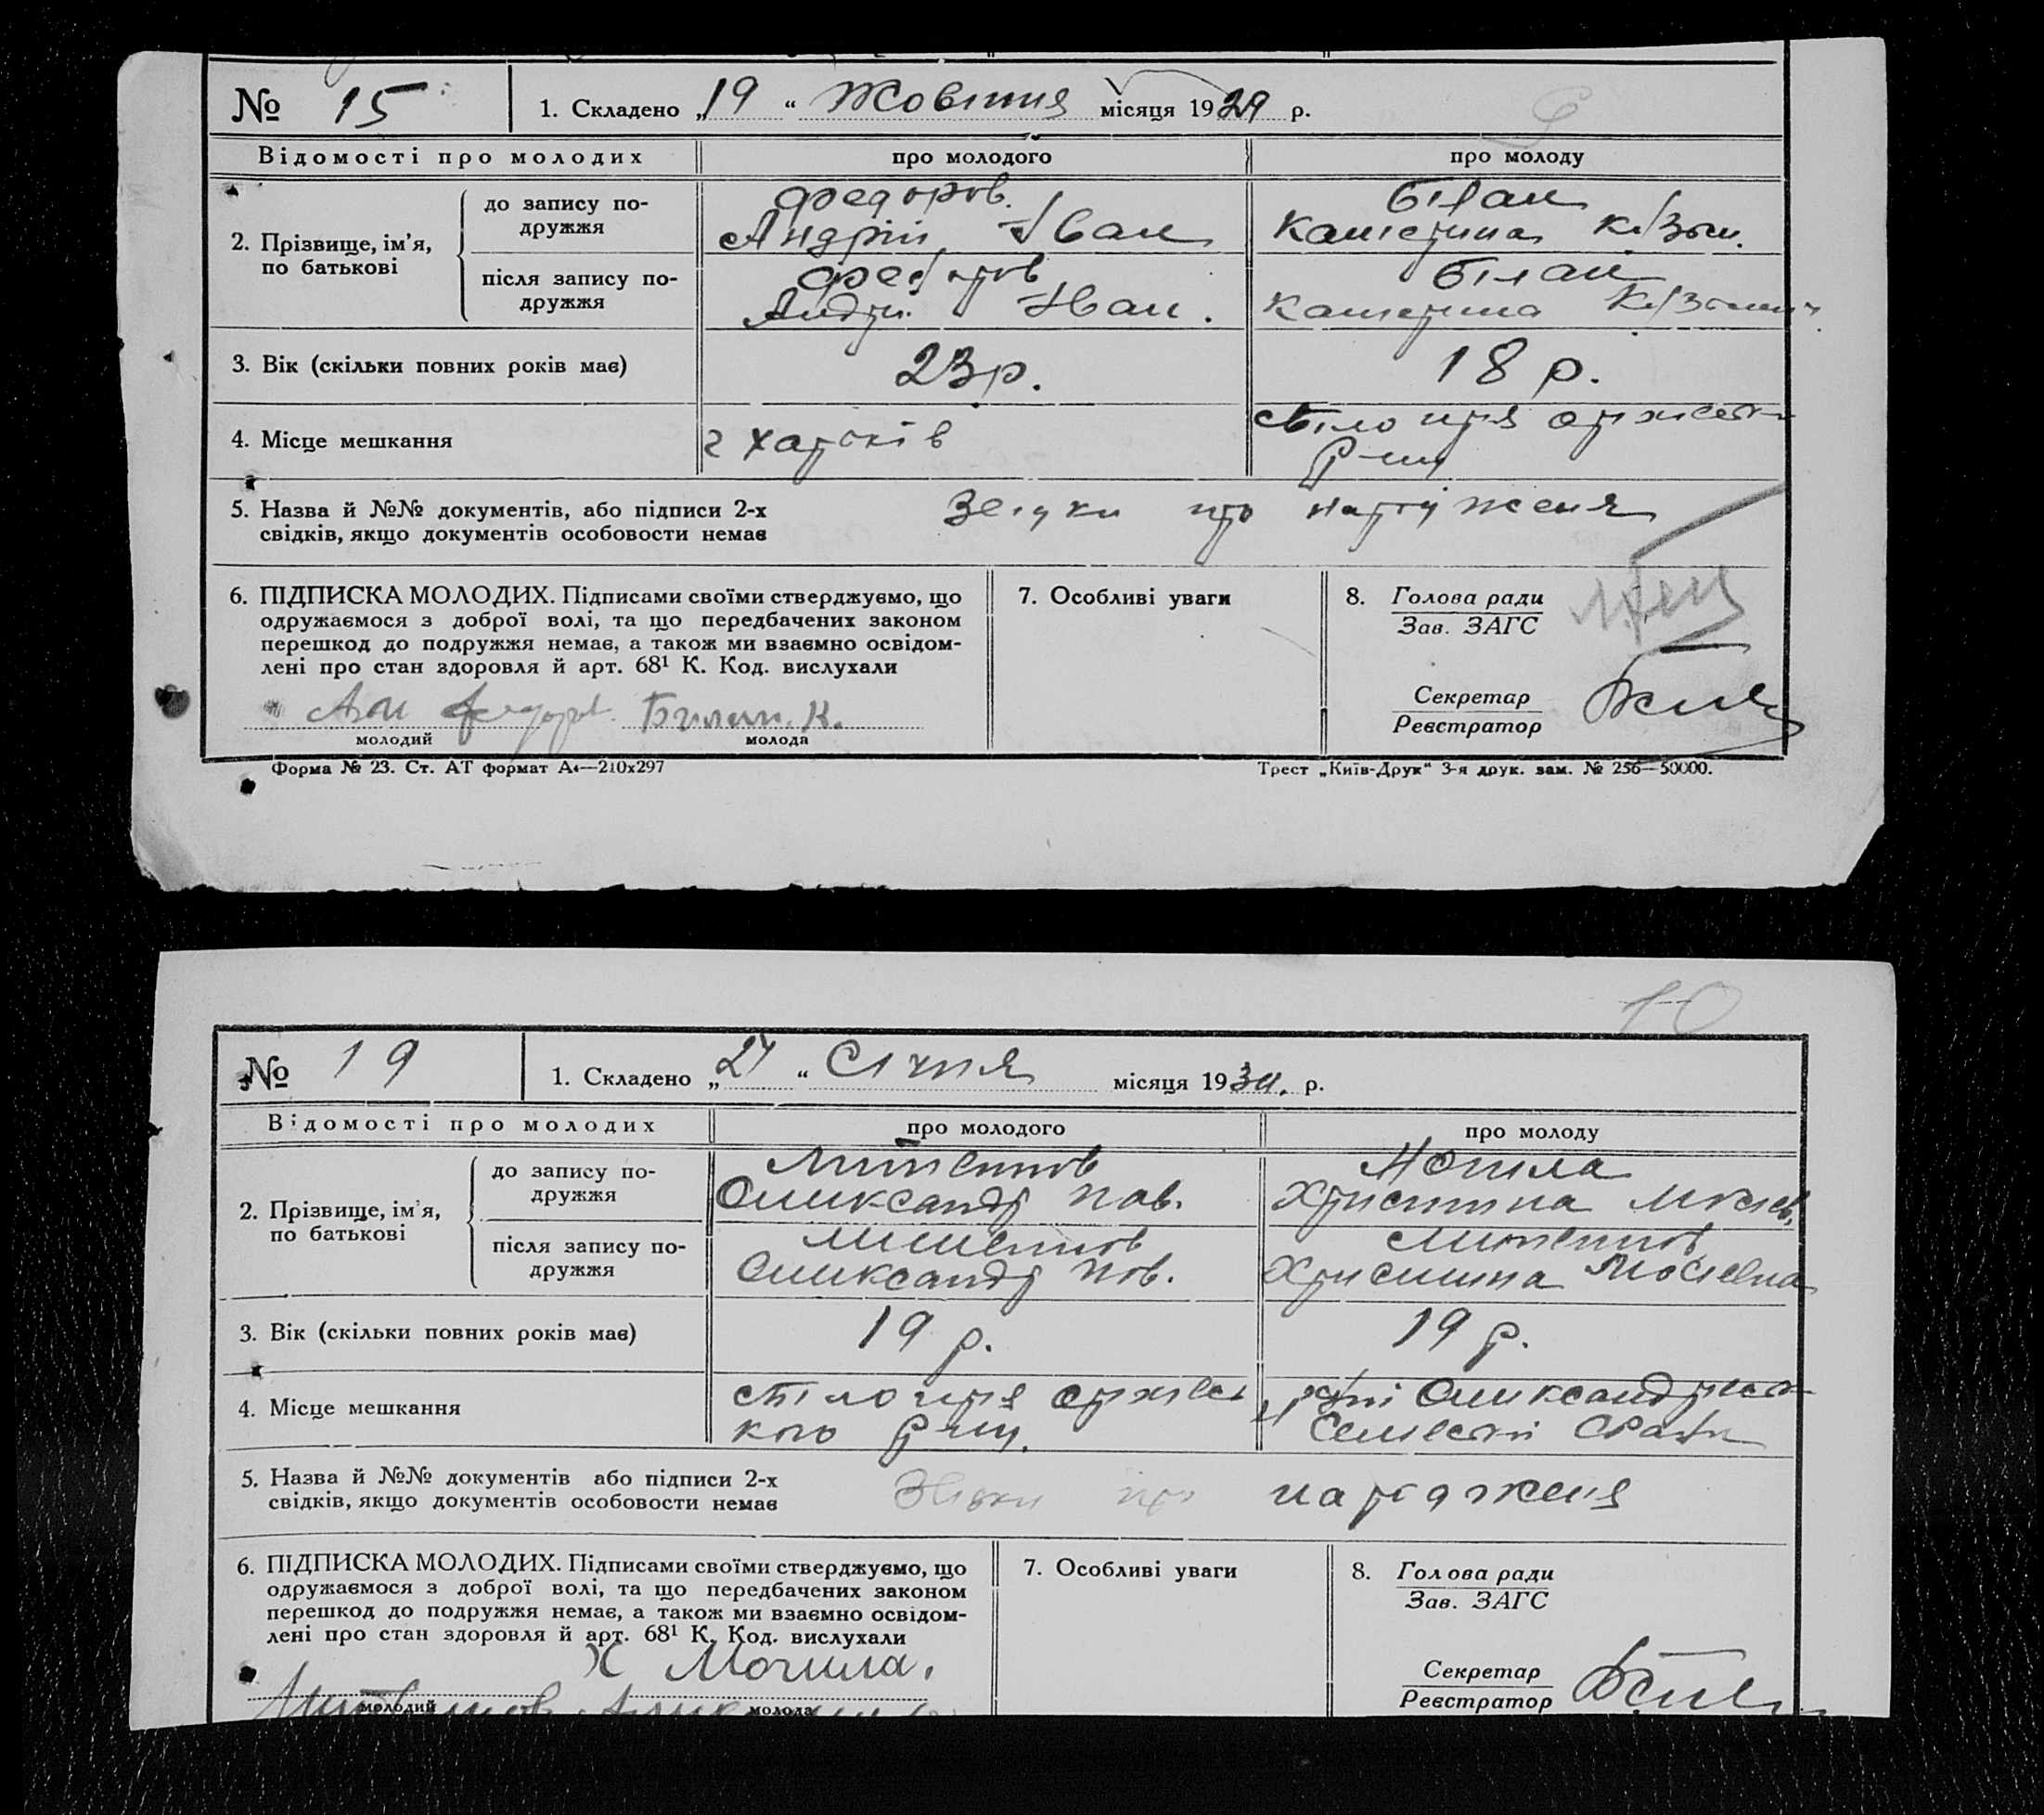 № 15 1. Складено „19“ Жовтня місяця 1929 р.
Відомості про молодих про молодого про молоду
2. Прізвище, ім’я, по батькові
до запису подружжя
Федоров. Білан
Андрій Іван Катерина Кузьм.
після запису подружжя
Федоров Білан
Андрі. Іван. Катерина
3. Вік (скільки повних років має) 23 р. 18 р.
4. Місце мешкання г Харьків
Р-ну
5. Назва й №№ документів, або підписи 2-х
свідків, якщо документів особовости немає
про
6. ПІДПИСКА МОЛОДИХ. Підписами своїми стверджуємо, що
одружаємося з доброї волі, та що передбачених законом
перешкод до подружжя немає, а також ми взаємно освідом-
лені про стан здоровля й арт. 68¹ К. Код. вислухали
Билан. К.
молодий молода
7. Особливі уваги
8. Голова ради
Зав. ЗАГС
Секретар
Реєстратор
Форма № 23. Ст. АТ формат А4—210х297 Трест „Київ-Друк“ 3-я друк. зам. № 256—50000.
10
№ 19 1. Складено „ “ Січня місяця 19 р.
Відомості про молодих про молодого про молоду
2. Прізвище, ім’я, по батькові
до запису подружжя
Литвинов Могила
Олександр Пав. Христина
після запису подружжя
Литвинов Литвинов
Олександр Пав. Христина
3. Вік (скільки повних років має) 19 р. 19 р.
4. Місце мешкання
кого р-ну.
5. Назва й №№ документів або підписи 2-х
свідків, якщо документів особовости немає
про
6. ПІДПИСКА МОЛОДИХ. Підписами своїми стверджуємо, що
одружаємося з доброї волі, та що передбачених законом
перешкод до подружжя немає, а також ми взаємно освідом-
лені про стан здоровля й арт. 68¹ К. Код. вислухали
Х Могила.
молодий молода
7. Особливі уваги
8. Голова ради
Зав. ЗАГС
Секретар
Реєстратор